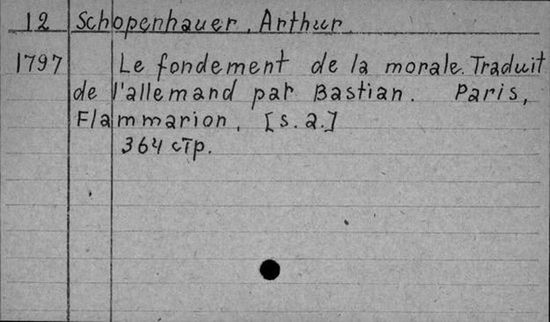 12 Schopenhauer, Arthur
1797 Le fondement de la morale. Traduit
de l'allemand par Bastian. Paris,
Flammarion, [s. a.]
364 стр.